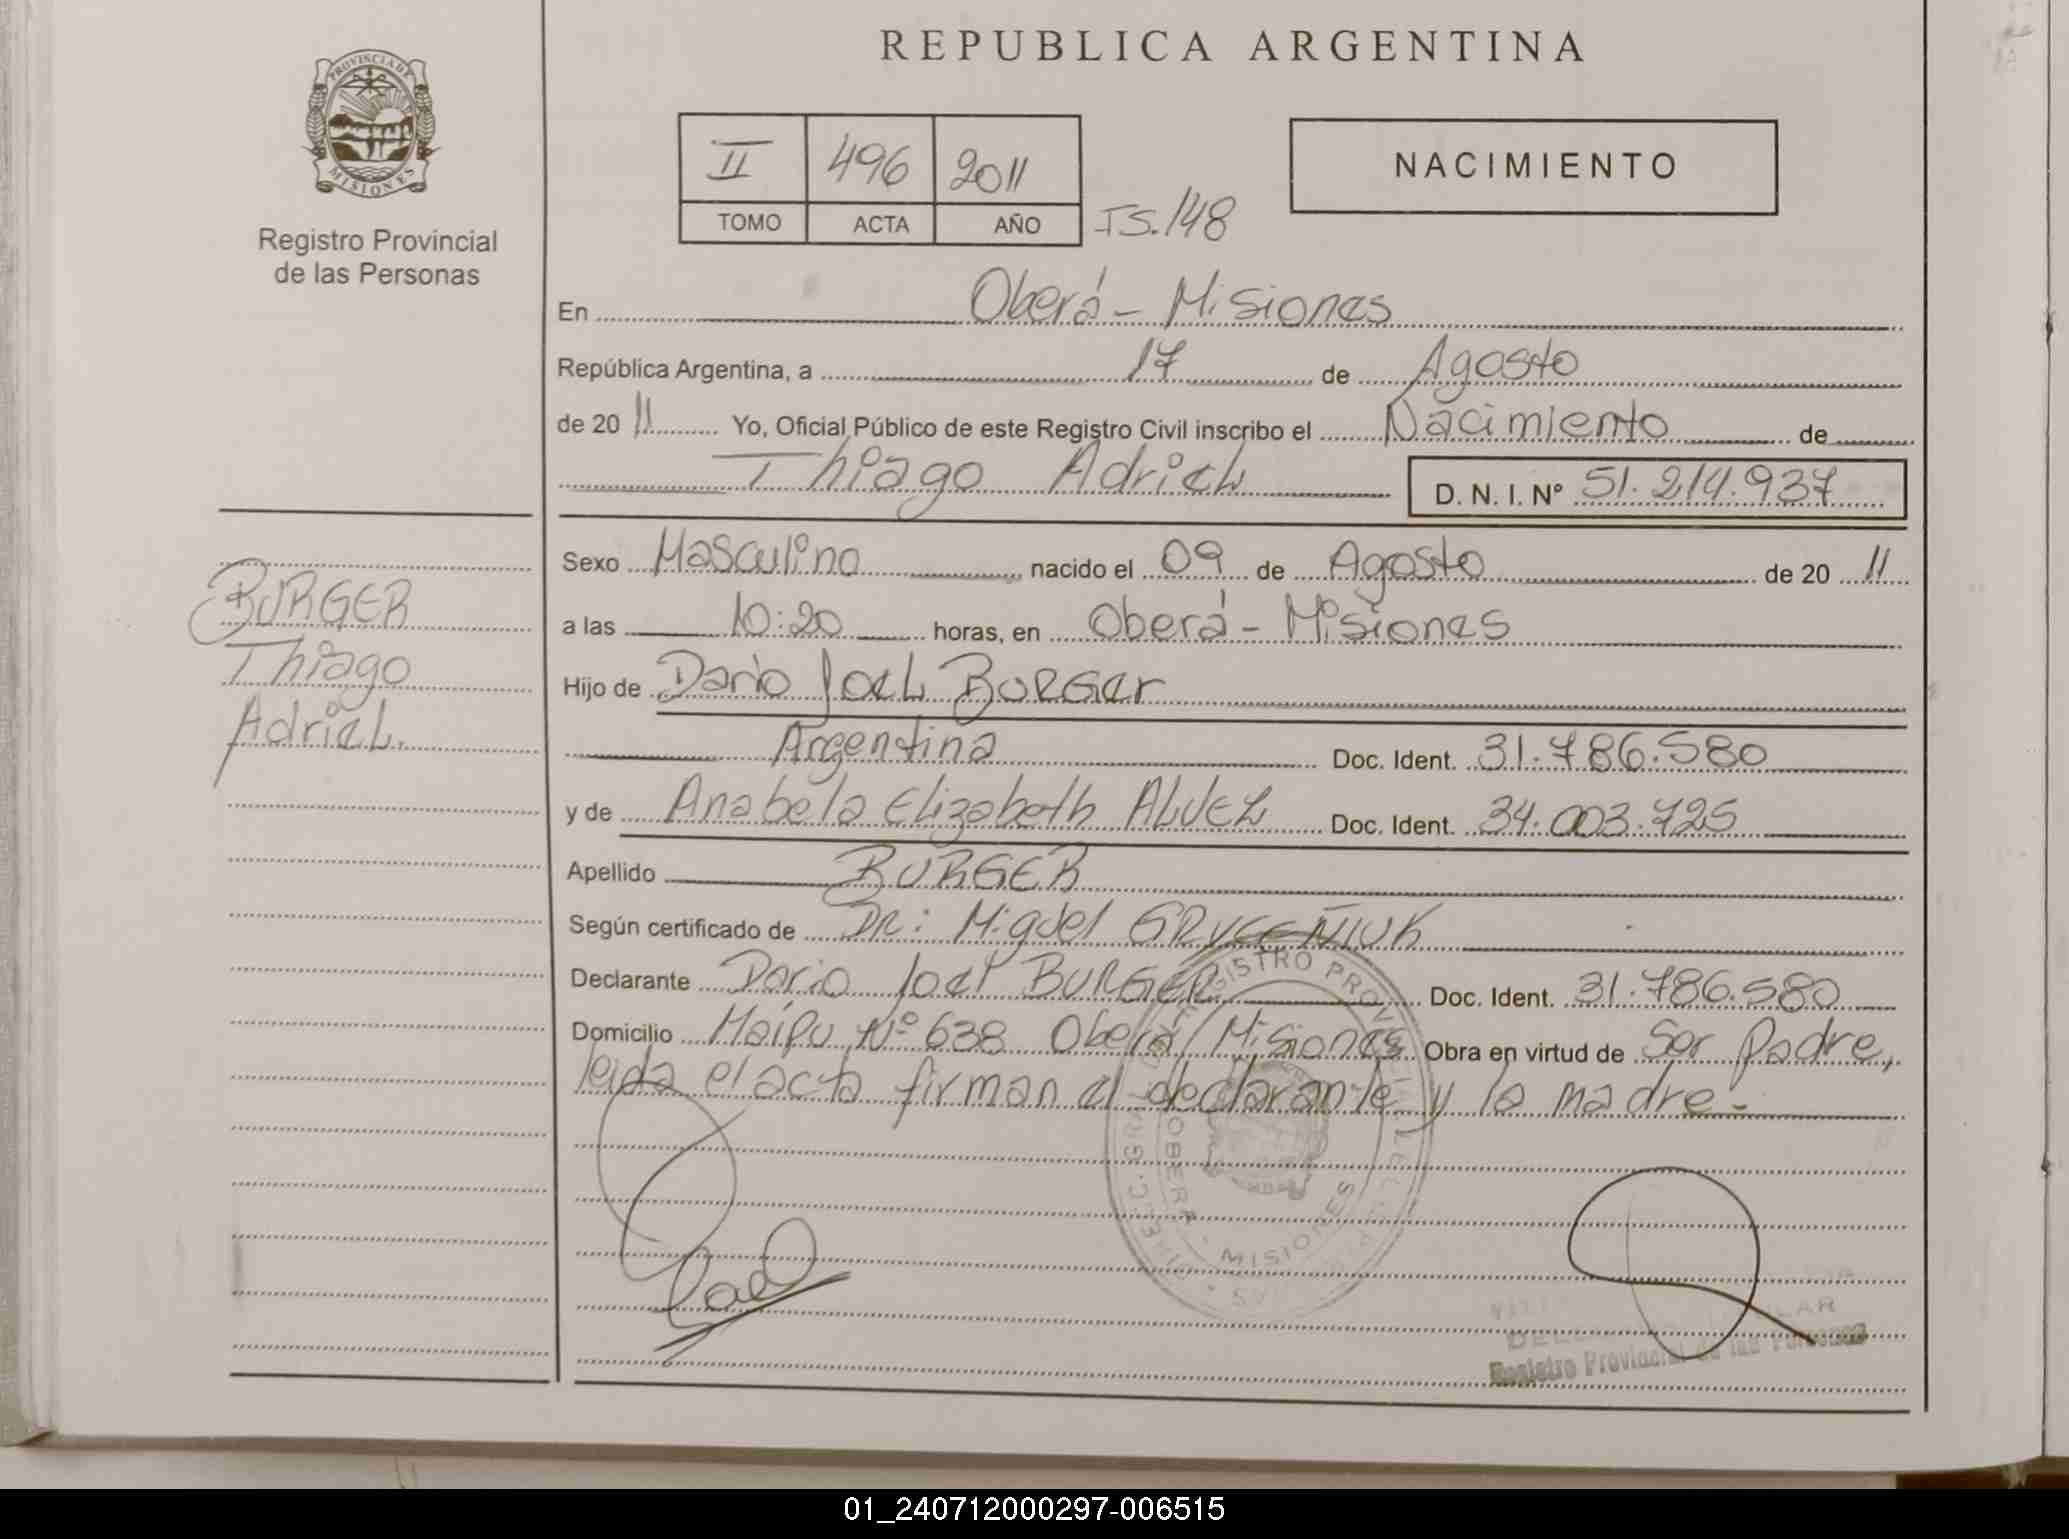 REPUBLICA ARGENTINA
PROVINCIA DE
MISIONES
Registro Provincial
de las Personas
II 496 2011
TOMO ACTA AÑO
NACIMIENTO
En Oberá - Misiones
República Argentina, a 17 de Agosto
de 2011 Yo, Oficial Público de este Registro Civil inscribo el Nacimiento de
Thiago Adriel D. N. I. Nº 51.214.937
Sexo Masculino nacido el 09 de Agosto de 2011
a las 10:20 horas, en Oberá - Misiones
Hijo de Dario Joel BURGer
Argentina Doc. Ident. 31.786.580
y de Anabela Elizabeth ALVEZ Doc. Ident. 34.003.725
Apellido BURGER
Según certificado de DR: Miguel
Declarante Dario Joel BURGER Doc. Ident. 31.786.580
Domicilio Maipu Nº 638 Oberá Misiones Obra en virtud de Ser Padre,
leida el acta firman el declarante y la madre.-
BURGER
Thiago
Adriel.
REGISTRO PROVINCIAL DE
OBERA - MISIONES
Registro Provincial de las Personas
01_240712000297-006515